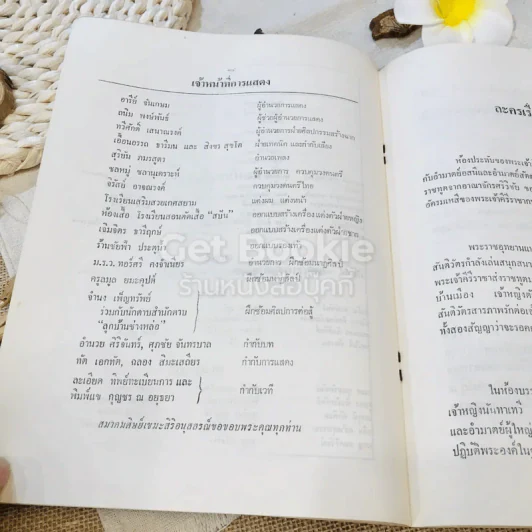 เจ้าหน้าที่การแสดง
อารีย์ จันเกษม ผู้อำนวยการแสดง
ถนิม พงษ์พันธ์ ผู้ช่วยผู้อำนวยการแสดง
ทวีศักดิ์ เสนาณรงค์ ผู้อำนวยการฝ่ายศิลปกรรมสร้างฉาก
และ สิงขร สุขโต ฝ่ายเทคนิค และกำกับเสียง
สุริยัน อำนวยเพลง
ชลหมู่ ชลานุเคราะห์ ผู้อำนวยการ ควบคุมวงดนตรี
จิรัถย์ อาจณรงค์ ควบคุมวงดนตรีไทย
โรงเรียนเสริมสวยเกศสยาม แต่งผม แต่งหน้า
ห้องเสื้อ โรงเรียนสอนตัดเสื้อ "สปัน" ออกแบบสร้างเครื่องแต่งตัวฝ่ายหญิง
เจิมจิตร ธารีฤกษ์ ออกแบบสร้างเครื่องแต่งตัวฝ่ายชาย
ร้านชัยฟ้า ประตูน้ำ ออกแบบรองเท้า
ม.ร.ว. ทองศรี อำนวยการ ฝึกซ้อมนาฏศิลป์
ครูลมูล ยมะคุปต์ ฝึกซ้อม
จำนง เพ็ญทรัพย์
ร่วมกับนักดาบสำนักดาบ ฝึกซ้อมศิลปการต่อสู้
"ลูกบ้านช่างหล่อ"
อำนวย ศิริจันทร์, ศุภชัย จันทรบาล กำกับบท
ทัต เอกทัต, ฉลอง สิมะเสถียร กำกับการแสดง
ละเอียด ทิพย์ทะเบียนการ และ
พิมพ์แข กุญชร ณ อยุธยา กำกับเวที
สมาคมศิษย์เขมะสิริอนุสสรณ์ขอขอบพระคุณทุกท่าน
ละครเรื่
ห้องประทับของพระเจ้า
พระราชอุทยานแ
บ้านเมือง เจ้าหญิง
สันติวัตรสาภาพว่า
ทั้งสองสัญญาว่าจะรอค
ในห้องบรร
เจ้าหญิงนันทาเทวี
และอำมาตย์ผู้ใหญ่
ปฏิบัติพระองค์ใน
Get Bookie
ร้านหนังสือบุ๊คกี้